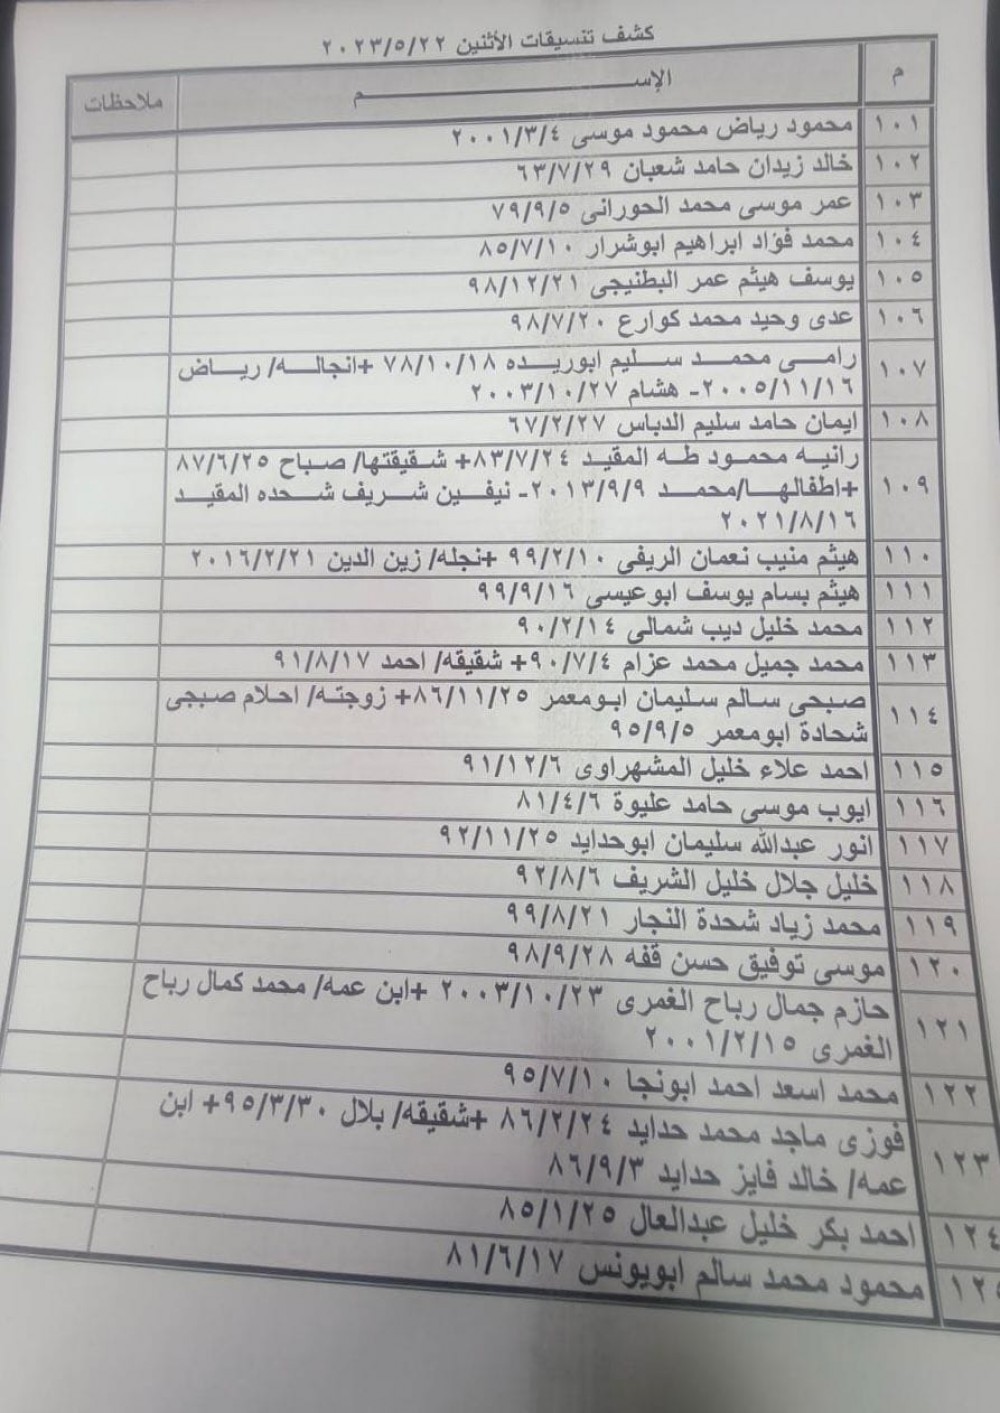 كشف تنسيقات الأثنين ٢٠٢٣/٥/٢٢
م الإســـــــم ملاحظات
١٠١ محمود رياض محمود موسى ٢٠٠١/٣/٤
١٠٢ خالد زيدان حامد شعبان ٦٣/٧/٢٩
١٠٣ عمر موسى محمد الحورانى ٧٩/٩/٥
١٠٤ محمد فؤاد ابراهيم ابوشرار ٨٥/٧/١٠
١٠٥ يوسف هيثم عمر البطنيجى ٩٨/١٢/٢١
١٠٦ عدى وحيد محمد كوارع ٩٨/٧/٢٠
١٠٧ رامـــى محمـــد ســـليم ابوريـــده ٧٨/١٠/١٨ +انجالـــه/ ريـــاض
٢٠٠٥/١١/١٦- هشام ٢٠٠٣/١٠/٢٧
١٠٨ ايمان حامد سليم الدباس ٦٧/٢/٢٧
١٠٩ رانيـه محمـود طـه المقيد ٨٣/٧/٢٤+ شـقيقتها/ صـباح ٨٧/٦/٢٥
+اطفالهـــا/محمـــد ٢٠١٣/٩/٩- نيفـــين شـــريف شـــحده المقيـــد
٢٠٢١/٨/١٦
١١٠ هيثم منيب نعمان الريفى ٩٩/٢/١٠ +نجله/ زين الدين ٢٠١٦/٢/٢١
١١١ هيثم بسام يوسف ابوعيسى ٩٩/٩/١٦
١١٢ محمد خليل ديب شمالى ٩٠/٢/١٤
١١٣ محمد جميل محمد عزام ٩٠/٧/٤+ شقيقه/ احمد ٩١/٨/١٧
١١٤ صـبحى سـالم سـليمان ابـومعمر ٨٦/١١/٢٥+ زوجتـه/ احـلام صـبحى
شحادة ابومعمر ٩٥/٩/٥
١١٥ احمد علاء خليل المشهراوى ٩١/١٢/٦
١١٦ ايوب موسى حامد عليوة ٨١/٤/٦
١١٧ انور عبدالله سليمان ابوحدايد ٩٢/١١/٢٥
١١٨ خليل جلال خليل الشريف ٩٢/٨/٦
١١٩ محمد زياد شحدة النجار ٩٩/٨/٢١
١٢٠ موسى توفيق حسن قفه ٩٨/٩/٢٨
١٢١ حازم جمال رباح الغمرى ٢٠٠٣/١٠/٢٣ +ابن عمه/ محمد كمال رباح
الغمرى ٢٠٠١/٢/١٥
١٢٢ محمد اسعد احمد ابونجا ٩٥/٧/١٠
١٢٣ فوزى ماجد محمد حدايد ٨٦/٢/٢٤ +شقيقه/ بلال ٩٥/٣/٣٠+ ابن
عمه/ خالد فايز حدايد ٨٦/٩/٣
١٢٤ احمد بكر خليل عبدالعال ٨٥/١/٢٥
١٢٥ محمود محمد سالم ابويونس ٨١/٦/١٧